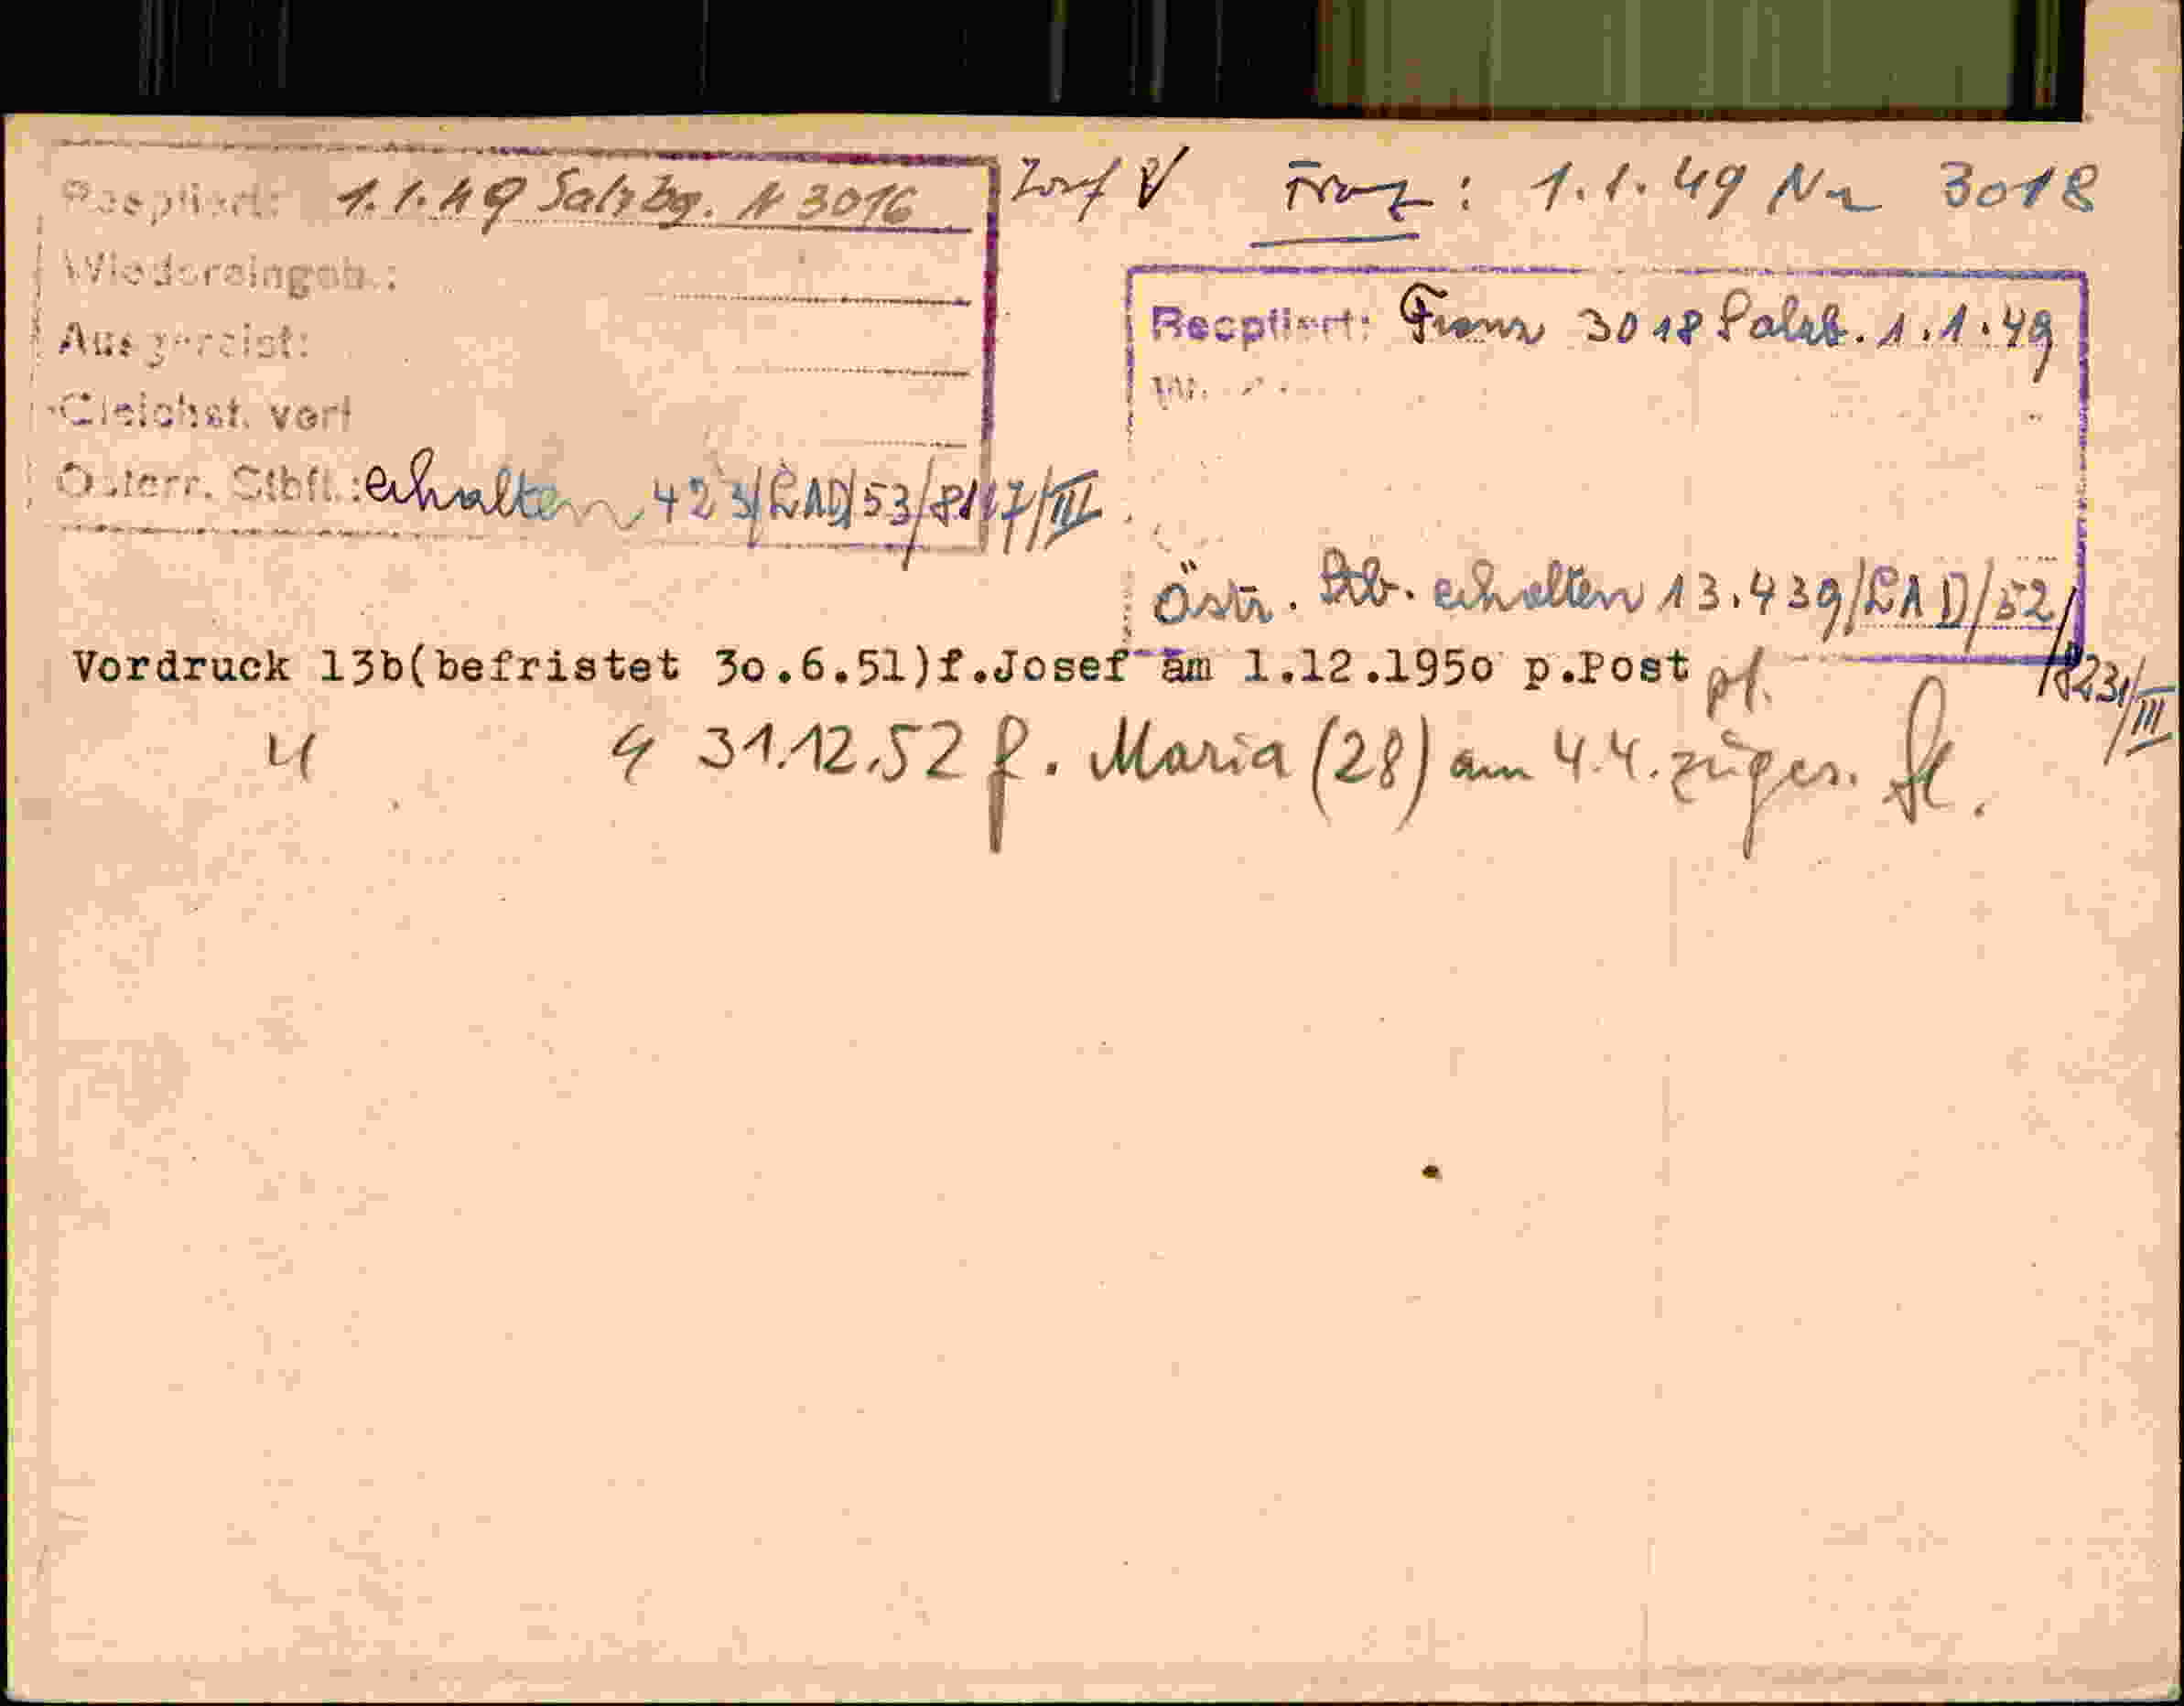 Recptiert: 1.1.49 Salzbg. N 3016
Josef
Franz: 1.1.49 Nr 3018
Wiedereingeb.:
Ausgereist:
Gleichst. verl
Österr. Stbft.: erhalten 423/LAD/53/8117/III
Recptiert: Franz 3018 Salzb. 1.1.49
W.
Östr. Stb. erhalten 13.439/LAD/52/
/823/III
Vordruck 13b(befristet 30.6.51)f.Josef am 1.12.1950 p.Post pf.
" " 31.12.52 f. Maria (28) am 4.4. zuges.